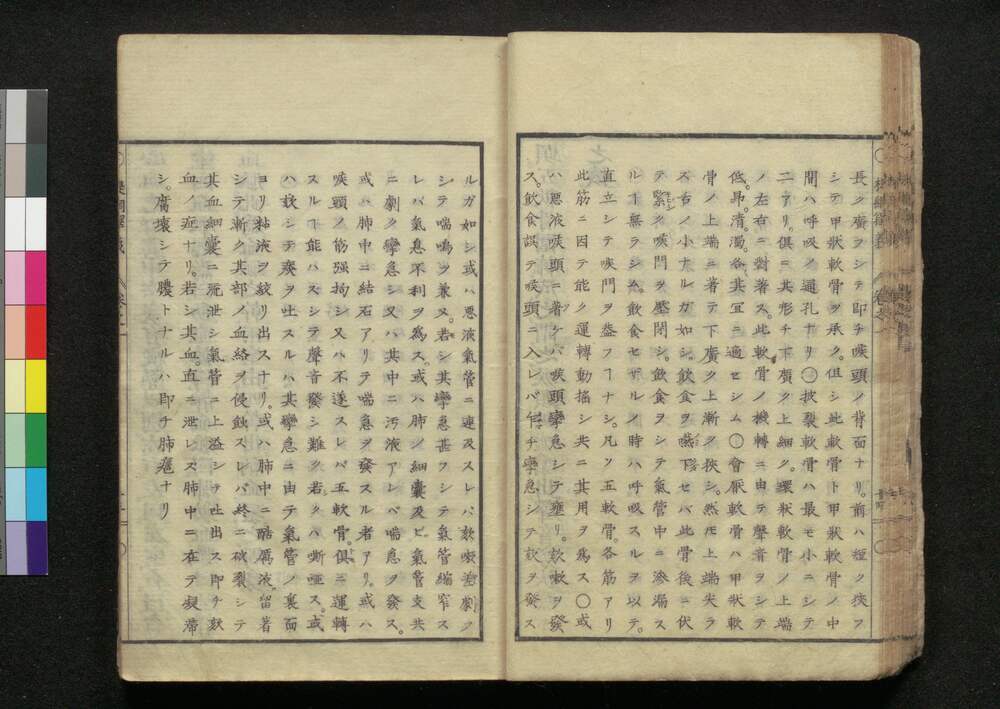 長ク廣フシテ即チ喉頭ノ背面ナリ。前ハ極ク狹フ
シテ甲狀軟骨ヲ承ク。但シ此軟骨ト甲狀軟骨ノ中
間ハ呼吸ノ通孔ナリ〇披裂軟骨ハ最モ小ニシテ
二アリ。俱ニ其形チ下廣ク上細ク。環狀軟骨ノ上端
ノ左右ニ對著ス。此軟骨ノ機轉ニ由テ聲音ヲシテ
低。昂。清。濁。各其宜ニ適セシム〇會厭軟骨ハ甲狀軟
骨ノ上端ニ著テ下廣ク上漸ク狹シ。然モ上端尖ラ
ズ右ノ小ナルガ如シ。飲食ヲ嚥下セバ此骨後ニ伏
テ緊ク喉門ヲ壓閉シ。飲食ヲシテ氣管中ニ滲漏ス
ルヿ無ラシム飲食セザルノ時ハ呼吸スルヲ以テ。
直立シテ喉門ヲ盖フヿナシ。凡ソ五軟骨。各筋アリ
此筋ニ因テ能ク運轉動搖シ共ニ其用ヲ爲ス〇或
ハ悪液喉頭ニ著ケバ喉頭攣急シテ壅リ。欬嗽ヲ發
ス。飲食誤テ喉頭ニ入レバ乍チ攣急シテ欬ヲ發ス
ルガ如シ或ハ悪液氣管ニ連及スレバ欬嗽差劇ク
シテ喘鳴ヲ兼ヌ。若シ其攣急甚フシテ氣管縮窄ス
レバ氣息不利ヲ爲ス。或ハ肺ノ細囊及ビ氣管支共
ニ劇ク攣急シ又ハ其中ニ汚液アレバ喘息ヲ發ス。
或ハ肺中ニ結石アリテ喘息ヲ發スル者アリ。或ハ
喉頭ノ筋强拘シ又ハ不遂スレバ五軟骨。俱ニ運轉
スルヿ能ハズシテ聲音發シ難ク若クハ嘶啞ス。或
ハ欬シテ痰ヲ吐スルハ其攣急ニ由テ氣管ノ裏面
ヨリ黏液ヲ絞リ出スナリ。或ハ肺中ニ酷厲液。留著
シテ漸ク其部ノ血絡ヲ侵蝕スレバ終ニ破裂シテ
其血細囊ニ漏泄シ氣管ニ上溢シテ吐出ス即チ欬
血ノ症ナリ。若シ其血直ニ泄レズ肺中ニ在テ凝滯
シ。腐壞シテ膿トナルハ即チ肺癰ナリ